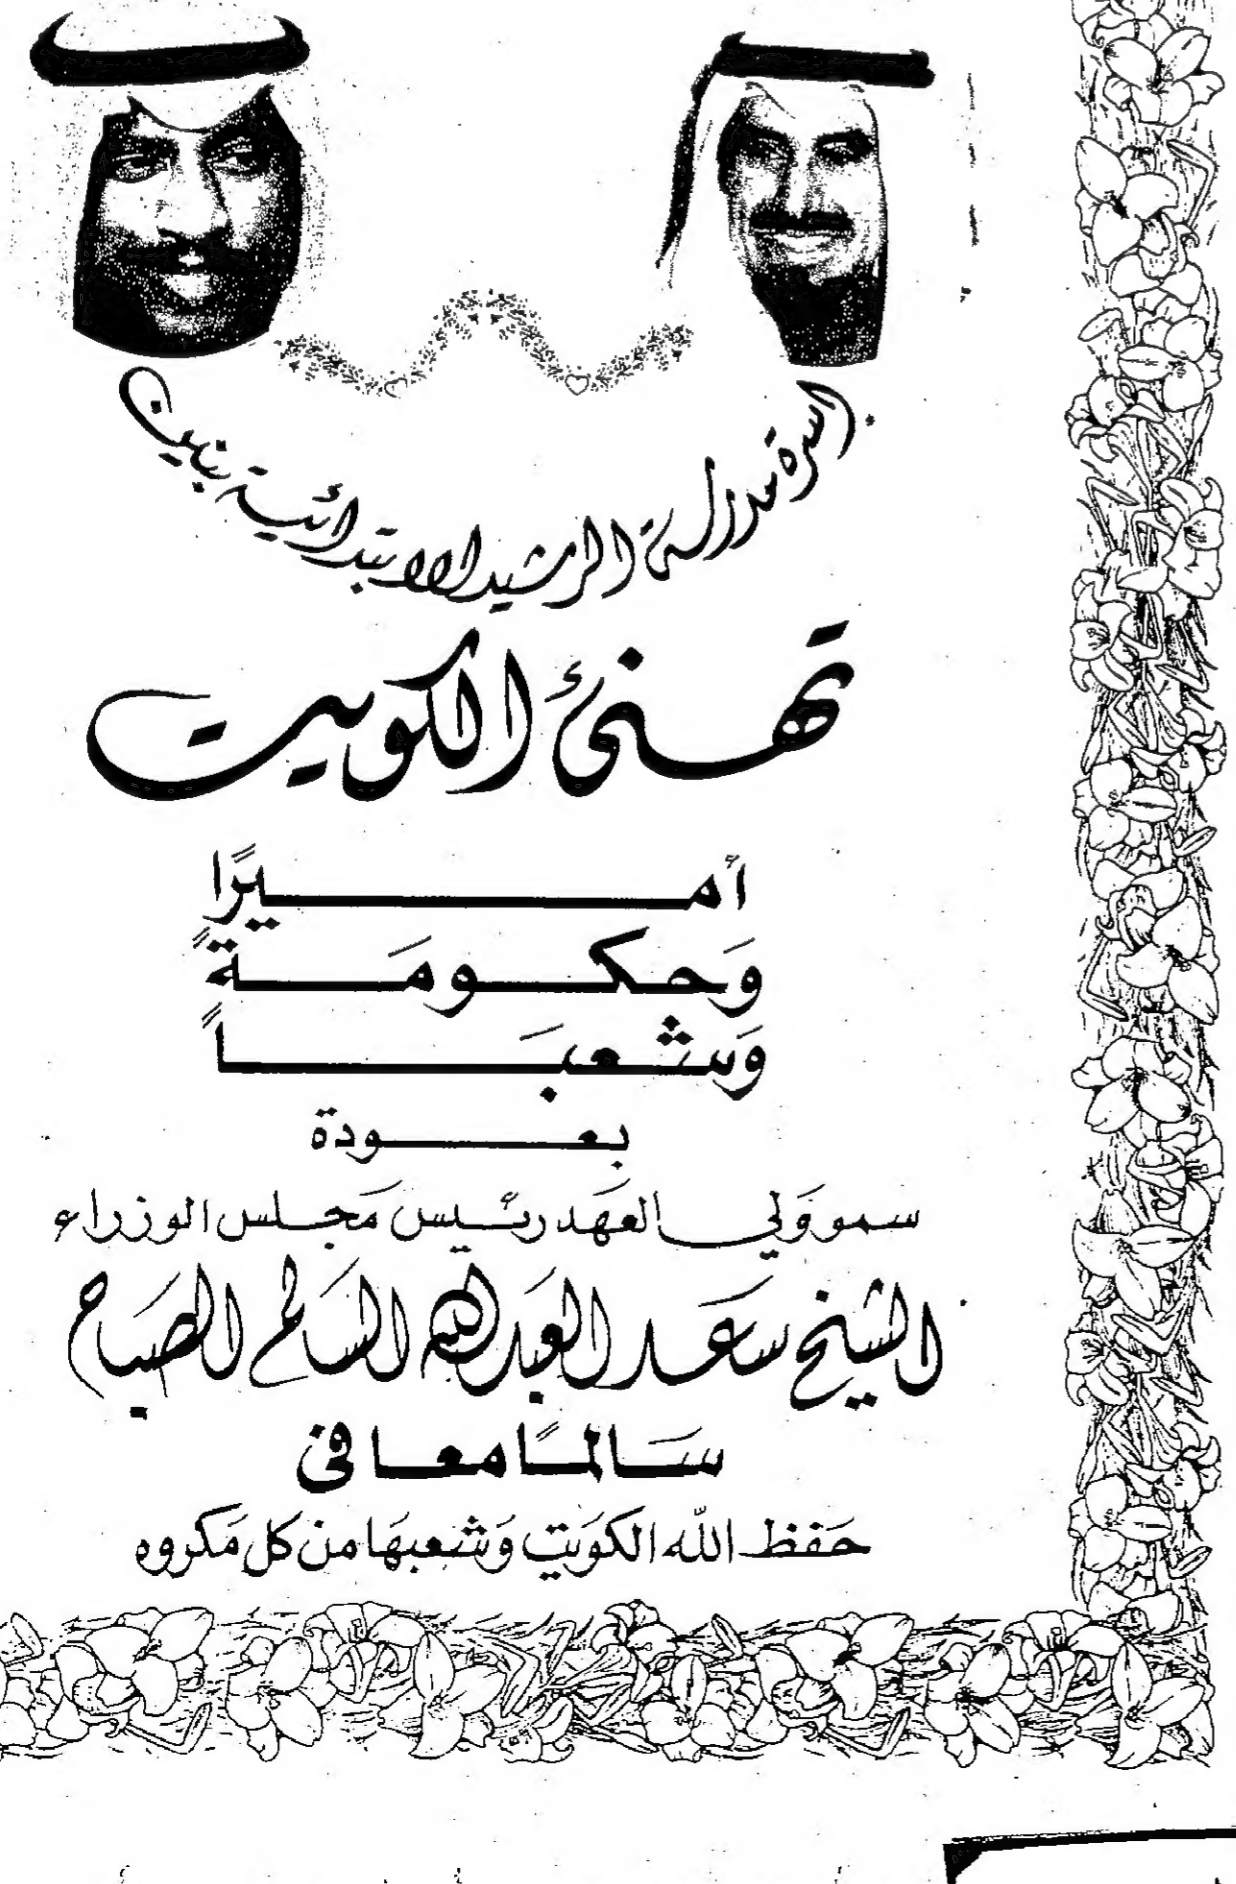 اسرة مدرسة الرشيد الابتدائية بنين
تهنئ الكويت
أميرًا
وَحكومَةً
وَشعبَاً
بعودة
سمو وَلي العهَد رئيس مَجلس الوزراء
الشيخ سَعد العبَد الله السَالم الصبَاح
سَالمًا معافى
حَفظ الله الكوَيت وَشعبهَا من كل مَكروه